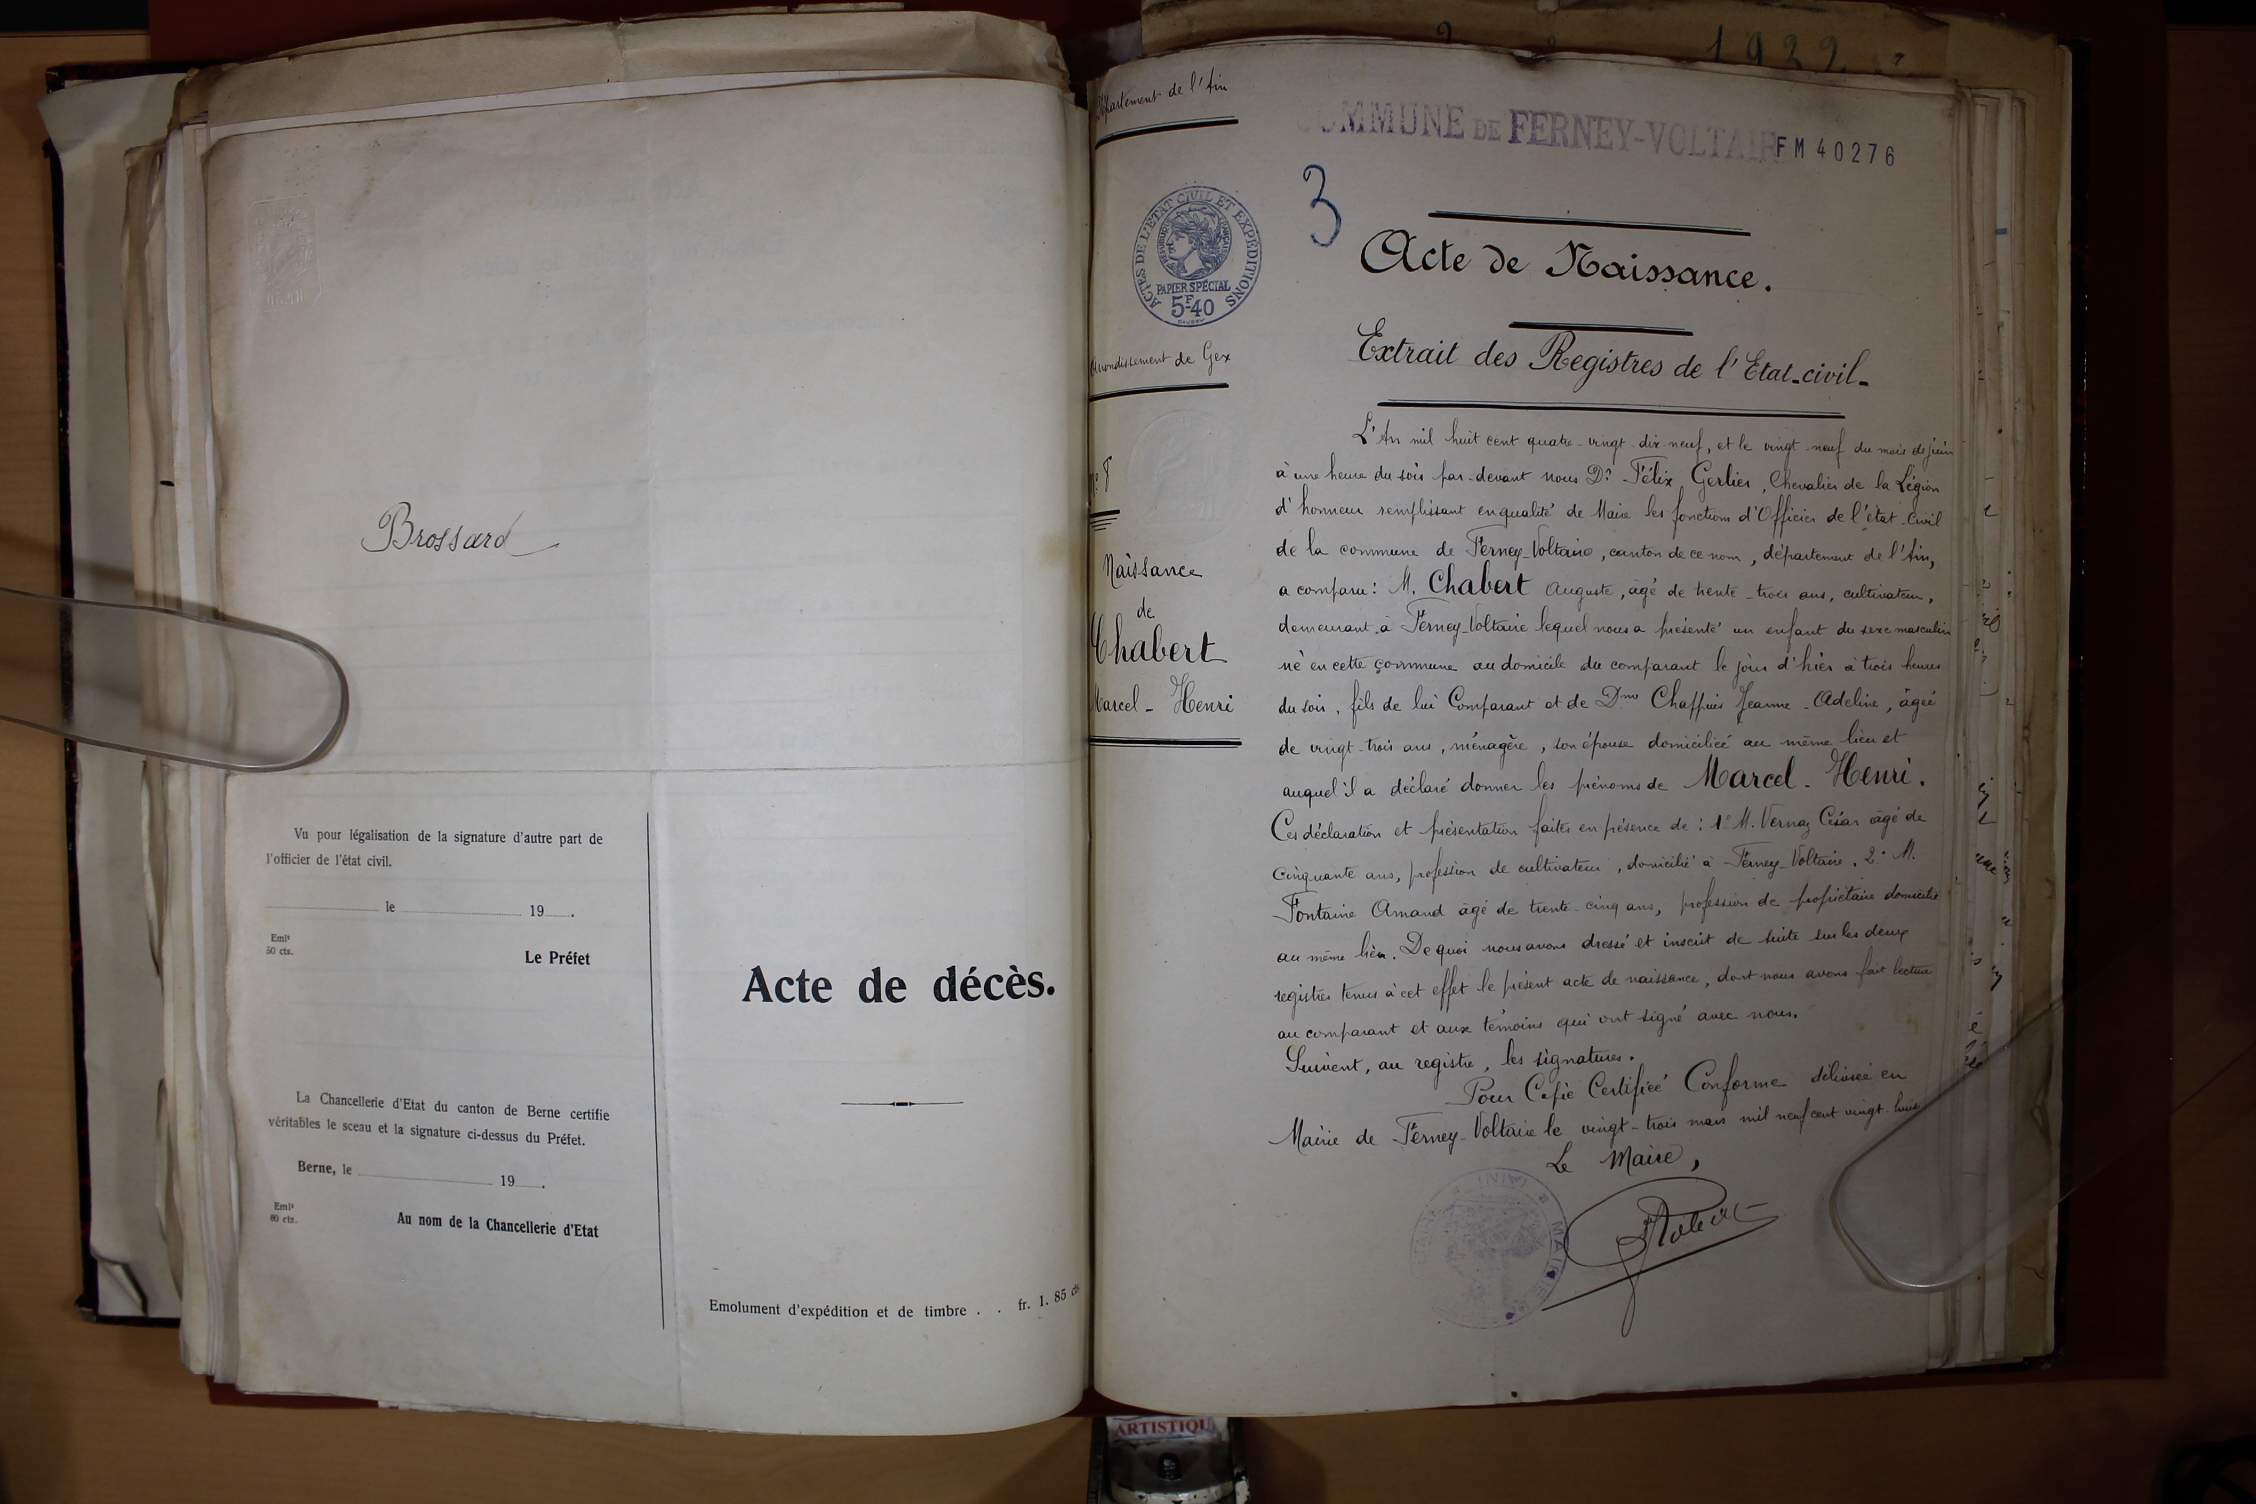 Brossard
Vu pour légalisation de la signature d'autre part de
l'officier de l'état civil.
le 19 .
Emlt
50 cts.
Le Préfet
La Chancellerie d'Etat du canton de Berne certifie
véritables le sceau et la signature ci-dessus du Préfet.
Berne, le 19 .
Emlt
60 cts.
Au nom de la Chancellerie d'Etat
Acte de décès.
Emolument d'expédition et de timbre . . fr. 1. 85 cts
1922
Département de l'Ain
COMMUNE DE FERNEY-VOLTAIRE
FM 40276
3
ACTES DE L'ETAT CIVIL ET EXPEDITIONS
PAPIER SPÉCIAL
5F40
Arrondissement de Gex
N° 8
Naissance
de
Chabert
Marcel - Henri
Acte de Naissance.
Extrait des Registres de l'Etat-civil-
L'An mil huit cent quatre-vingt-dix-neuf, et le vingt-neuf du mois de juin
à une heure du soir par-devant nous Dr Félix Gerlier, Chevalier de la Légion
d'honneur remplissant en qualité de Maire les fonctions d'Officier de l'état-civil
de la commune de Ferney-Voltaire, canton de ce nom, département de l'Ain,
a comparu: M. Chabert Auguste, âgé de trente-trois ans, cultivateur,
demeurant à Ferney-Voltaire lequel nous a présenté un enfant du sexe masculin
né en cette commune au domicile du comparant le jour d'hier à trois heures
du soir, fils de lui Comparant et de Dme Chappuis Jeanne-Adeline, âgée
de vingt-trois ans, ménagère, son épouse domiciliée au même lieu et
auquel il a déclaré donner les prénoms de Marcel - Henri.
Ces déclaration et présentation faites en présence de : 1° M. Vernaz César âgé de
cinquante ans, profession de cultivateur, domicilié à Ferney-Voltaire, 2° M.
Fontaine Amand âgé de trente-cinq ans, profession de propriétaire domicilié
au même lieu. De quoi nous avons dressé et inscrit de suite sur les deux
registres tenus à cet effet le présent acte de naissance, dont nous avons fait lecture
au comparant et aux témoins qui ont signé avec nous.
Suivent, au registre, les signatures.
Pour Copie Certifiée Conforme délivrée en
Mairie de Ferney-Voltaire le vingt-trois mars mil neuf cent vingt-huit
Le Maire,
MAIRIE DE
(AIN)
ARTISTIQU